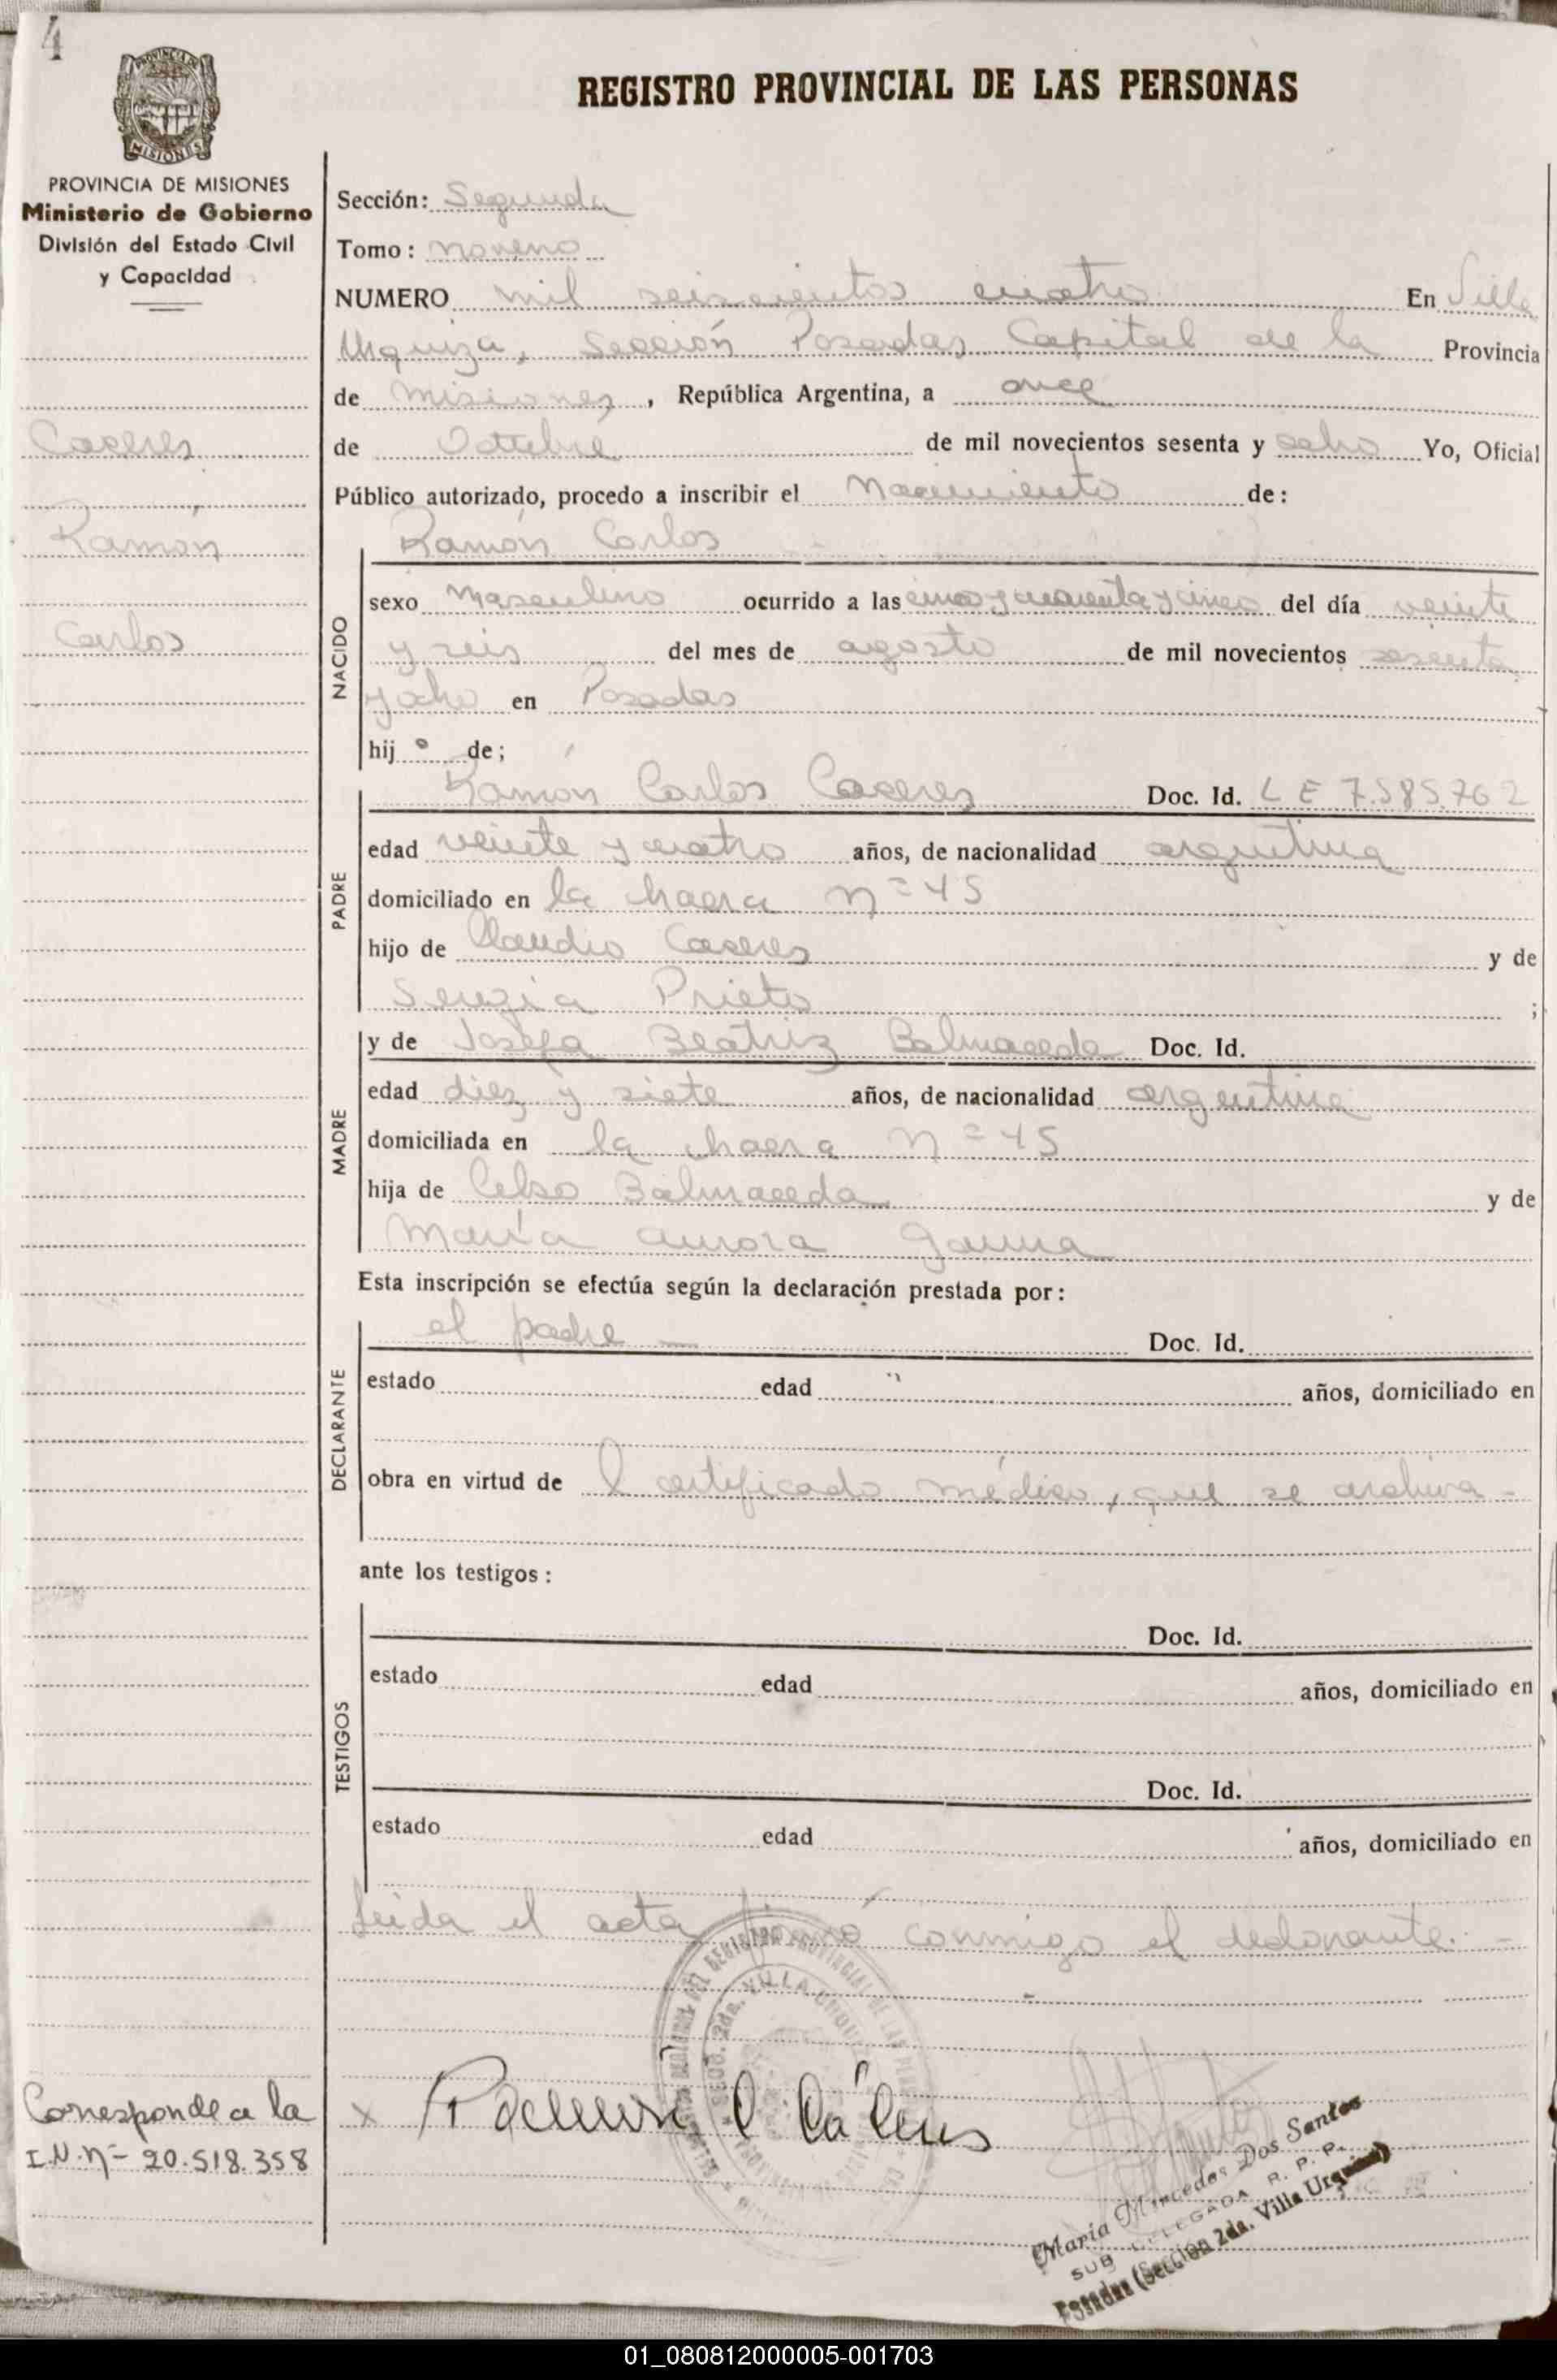 4
MISIONES
PROVINCIA DE MISIONES
Ministerio de Gobierno
División del Estado Civil
y Capacidad
Caceres
Ramón
Carlos
Corresponde a la
I.N. nº 20.518.358
REGISTRO PROVINCIAL DE LAS PERSONAS
Sección: Segunda
Tomo: noveno
NUMERO mil seiscientos cuatro En Villa
Urquiza, Sección Posadas Capital de la Provincia
de misiones, República Argentina, a once
de Octubre de mil novecientos sesenta y ocho Yo, Oficial
Público autorizado, procedo a inscribir el Nacimiento de:
NACIDO
Ramón Carlos
sexo masculino ocurrido a las cinco y cuarenta y cinco del día veinte
y seis del mes de agosto de mil novecientos sesenta
y ocho en Posadas
hij o de;
PADRE
Ramón Carlos Caceres Doc. Id. L E 7.585.762
edad veinte y cuatro años, de nacionalidad argentina
domiciliado en la chacra nº 45
hijo de Claudio Caceres y de
Prieto ;
MADRE
y de Josefa Beatriz Balmaceda Doc. Id.
edad diez y siete años, de nacionalidad argentina
domiciliada en la chacra nº 45
hija de Celso Balmaceda y de
María Aurora
Esta inscripción se efectúa según la declaración prestada por:
DECLARANTE
el padre — Doc. Id.
estado edad años, domiciliado en
obra en virtud de l certificado médico, que se archiva -
ante los testigos:
TESTIGOS
Doc. Id.
estado edad años, domiciliado en
Doc. Id.
estado edad años, domiciliado en
Leida el acta firmó conmigo el declarante. -
SECC. 2da. VILLA URQUIZA
x Ramon C Cáceres
María Mercedes Dos Santos
SUB DELEGADA R. P. P.
Posadas (Sección 2da. Villa Urquiza)
01_080812000005-001703